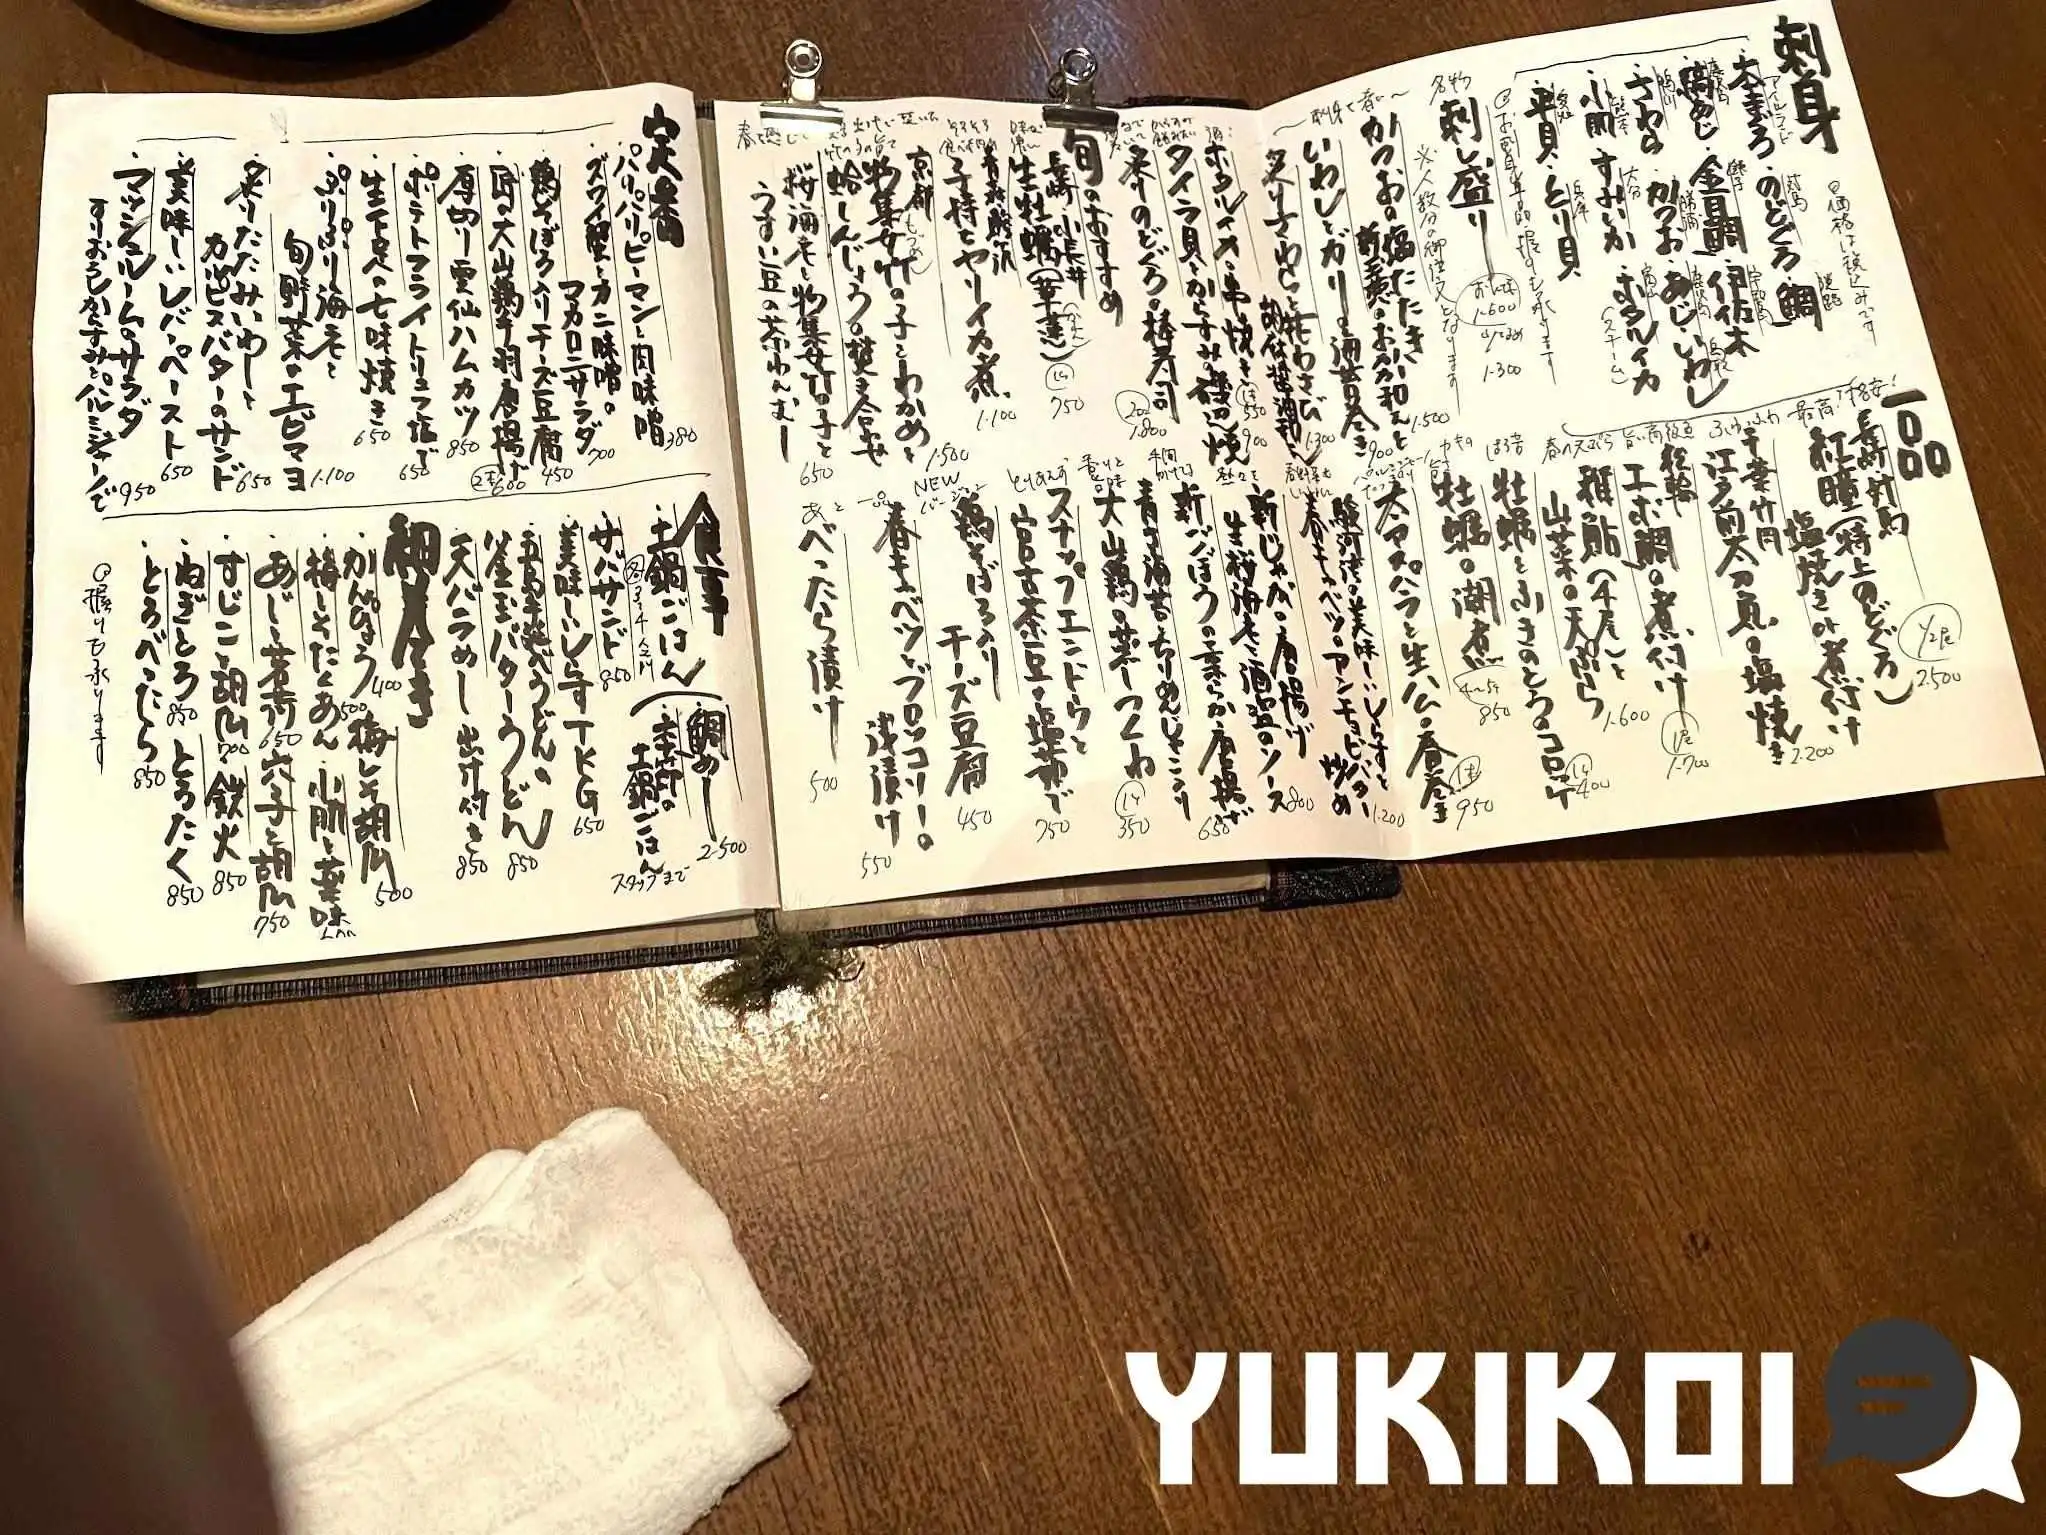 刺身
◎価格は税込みです
アイルランド
・本まぐろ
対馬
・のどぐろ
淡路
鯛
・縞あじ
銚子
・金目鯛
伊佐木
・さわら
勝浦
・かつお
・あじ
・いわし
・小肌
大分
すみいか
富山
ホタルイカ
(スチーム)
・平貝
・とり貝
名物
刺し盛り
お一人様
1.600
1.300
※人数分の御注文となります
〜刺身で一品〜
かつおの塩たたき
1.500
いわしとガリの海苔巻き
900
1.300
一品
長崎対馬
紅瞳(特上のどぐろ)
塩焼きor煮付け
1/2尾
2.500
千葉竹岡
江戸前太刀魚の塩焼き
2.200
松輪
エボ鯛の煮付け
1尾
1.700
稚鮎(4尾)と
山菜の天ぷら
1.600
牡蠣とふきのとうのコロッケ
1ケ
400
牡蠣の潮煮
4〜5ケ
850
太アスパラと生ハムの春巻き
1本
950
駿河湾の美味しいしらすと
春キャベツのアンチョビバター炒め
1.200
新じゃがの唐揚げ
生桜海老と酒盗のソース
800
新ごぼうの柔らか唐揚げ
650
青さ海苔ちりめんじゃこふり
大山鶏の蒸しつくね
1ケ
350
とりあえず
スナップエンドウと
宮古茶豆の塩茹で
750
NEW
バージョン
鶏そぼろ入り
チーズ豆腐
450
春キャベツとブロッコリーの
浅漬け
550
べったら漬け
500
旬のおすすめ
ホタルイカ串焼き
1本
550
タイラ貝とからすみの磯辺焼き
900
炙りのどぐろの棒寿司
2コ
1.800
長崎小長井
生牡蠣(華蓮)
1ケ
750
子持ちヤリイカ煮
1.100
京都
物集女竹の子とわかめと
蛤しんじょうの炊き合せ
1.500
桜海老と物集女竹の子と
うすい豆の茶わんむし
650
定番
・パリパリピーマンと肉味噌
380
・ズワイ蟹とカニ味噌の
マカロニサラダ
700
・鶏そぼろ入りチーズ豆腐
450
・匠の大山鶏手羽唐揚げ
2本
600
・厚切り雲仙ハムカツ
850
・ポテトフライトリュフ塩で
650
・生下足の七味焼き
650
・ぷりぷり海老と
旬野菜のエビマヨ
1.100
・炙りたたみいわしと
カルピスバターのサンド
650
・美味しいレバーペースト
650
・マッシュルームのサラダ
すりおろしからすみとパルミジャーノで
950
食事
・土鍋ごはん
鯛めし
2.500
季節の
土鍋ごはん
スタッフまで
・サバサンド
850
・美味しいしらすTKG
650
・五島手延べうどんの
釜玉バターうどん
850
・天バラめし
出汁付き
850
細巻き
・かんぴょう
400
・梅しそ胡瓜
500
・梅しそたくあん
500
・小肌と薬味
・あじと茗荷
650
・穴子と胡瓜
750
・すじこと胡瓜
700
・鉄火
850
・ねぎとろ
850
・とろたく
850
・とろべったら
850
◎握りも承ります
YUKIKOI